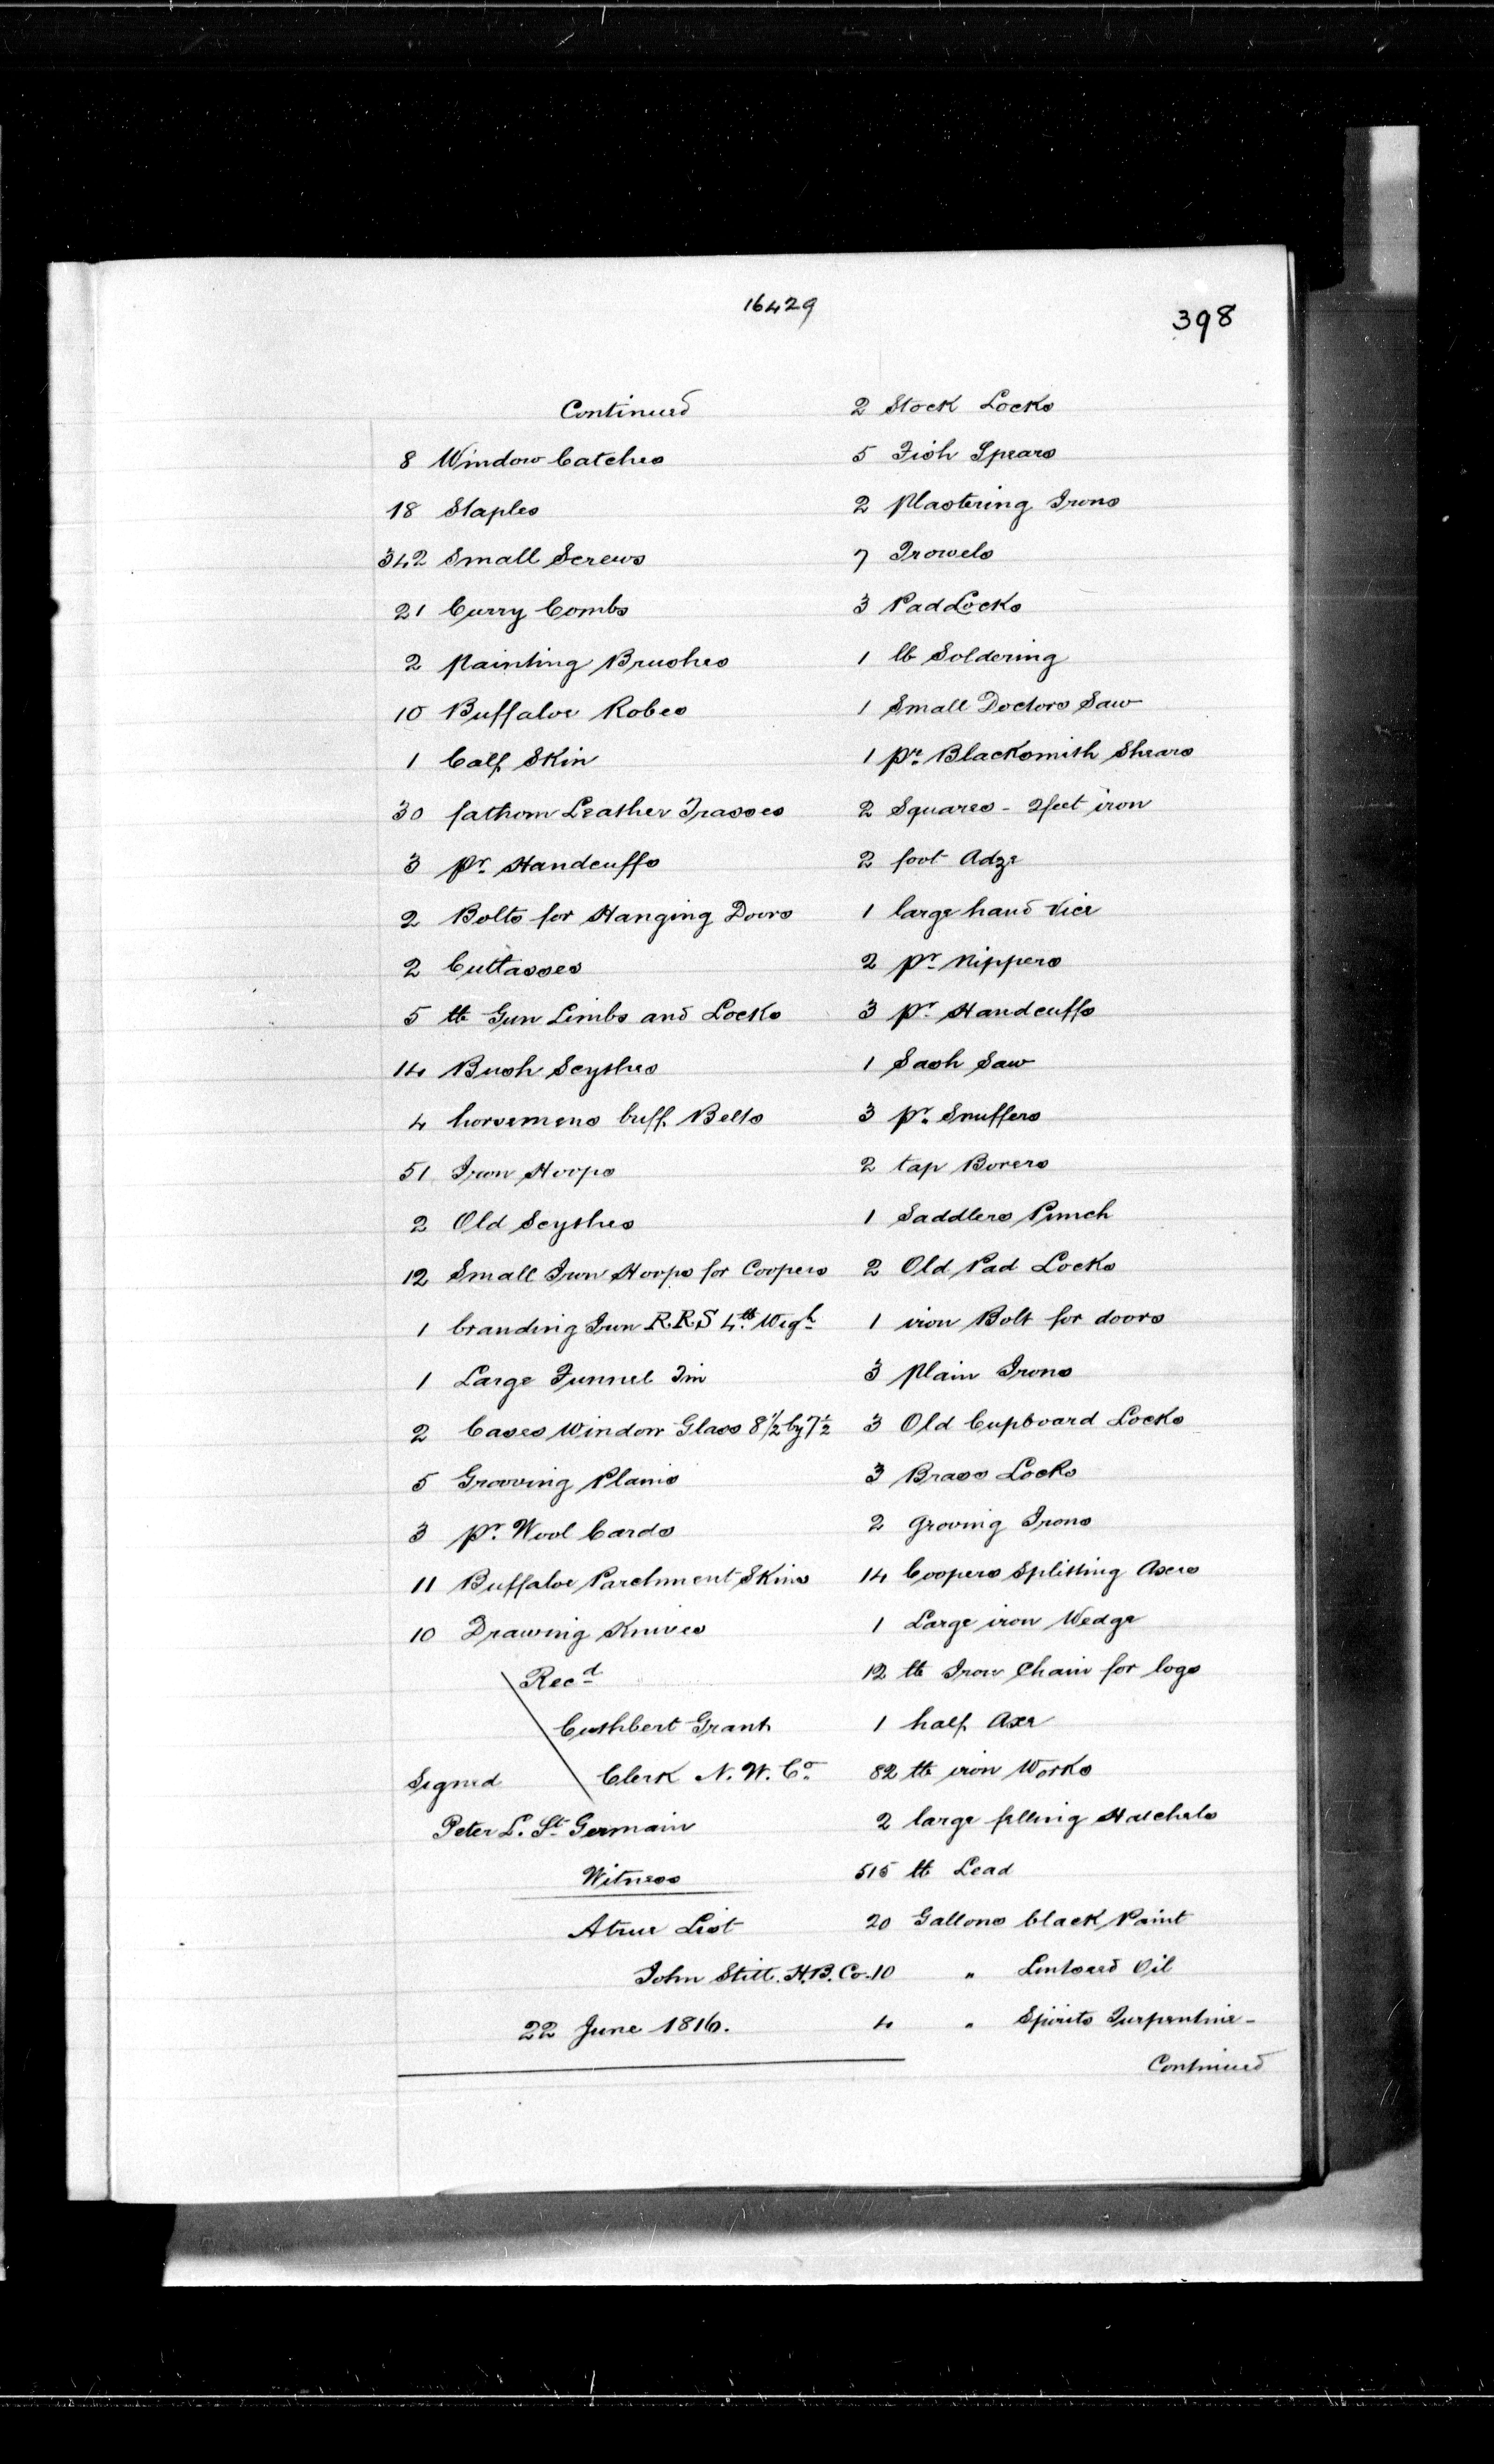 16429
398
Continued
8 Window Catches
18 Staples
342 Small Screws
21 Curry Combs
2 Painting Brushes
10 Buffaloe Robes
1 Calf Skin
30 fathom Leather Trasses
3 pr. Handcuffs
2 Bolts for Hanging Doors
2 Cuttasses
5 lb Gun Limbs and Locks
14 Bush Scythes
4 horsemens buff Belts
51 Iron Hoops
2 Old Scythes
12 Small Iron Hoops for Coopers
1 branding Iron R.R.S 4 lb Wigh
1 Large Funnel Tin
2 Cases Window Glass 8 1/2 by 7 1/2
5 Grooving Plains
3 pr. Wool Cards
11 Buffaloe Parchment Skins
10 Drawing Knives
Recd
Cuthbert Grant
Signed Clerk N. W. Co.
Peter L. St. Germain
Witness
A true List
John Stitt. H.B. Co.
22 June 1816.
2 Stock Locks
5 Fish Spears
2 Plastering Irons
7 Trowels
3 Pad Locks
1 lb Soldering
1 Small Doctors Saw
1 pr. Blacksmith Shears
2 Squares - 2 feet iron
2 foot Adze
1 large hand Vice
2 pr. Nippers
3 pr. Handcuffs
1 Sash Saw
3 pr. Snuffers
2 tap Borers
1 Saddlers Punch
2 Old Pad Locks
1 iron Bolt for doors
3 Plain Irons
3 Old Cupboard Locks
3 Brass Locks
2 Groving Irons
14 Coopers Splitting Axes
1 Large iron Wedge
12 lb Iron Chain for logs
1 half Axe
82 lb iron Works
2 large felling Hatchels
515 lb Lead
20 Gallons black Paint
10 " Lintseed Oil
4 " Spirits Turpentine -
Continued